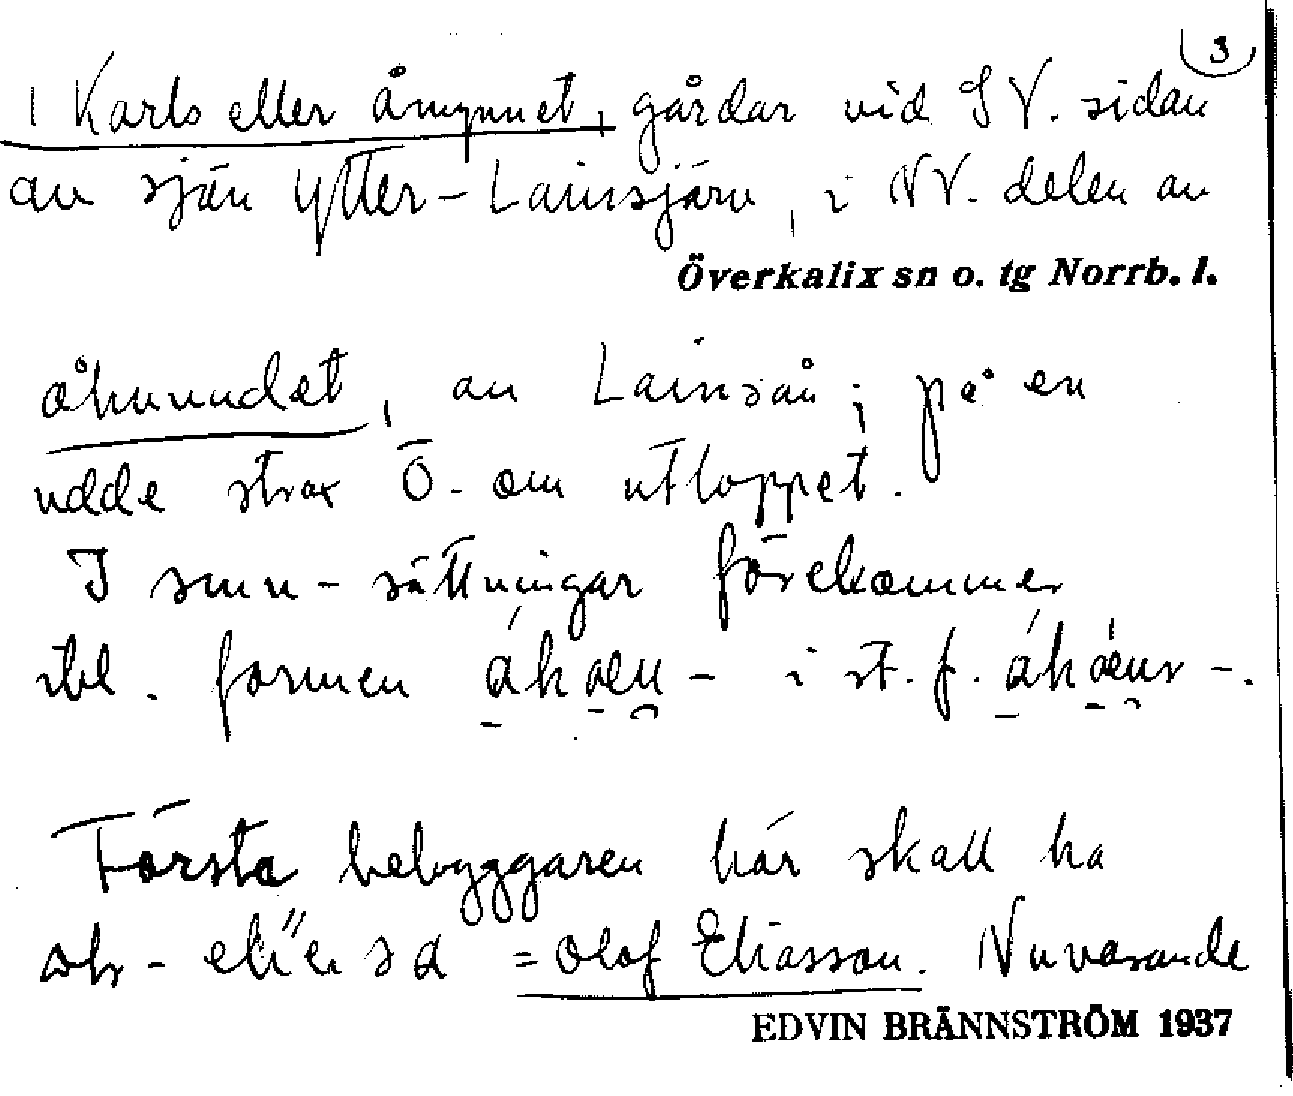 3
1 Karls eller åmynnet, gårdar vid SV. sidan
av sjön Ytter-Lainsjärv, i NV. delen av
Överkalix sn o. tg Norrb. l.
av Lainsån; på en
udde strax Ö. om utloppet.
I smn-sättningar förekommer
ibl. formen i st. f.
Första bebyggaren här skall ha
= Olof Eliasson. Nuvarande
EDVIN BRÄNNSTRÖM 1937